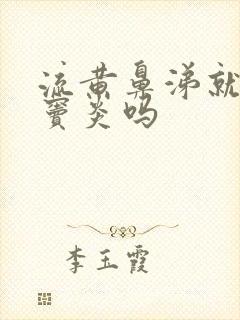 流黄鼻涕就
窦炎吗
李玉霞